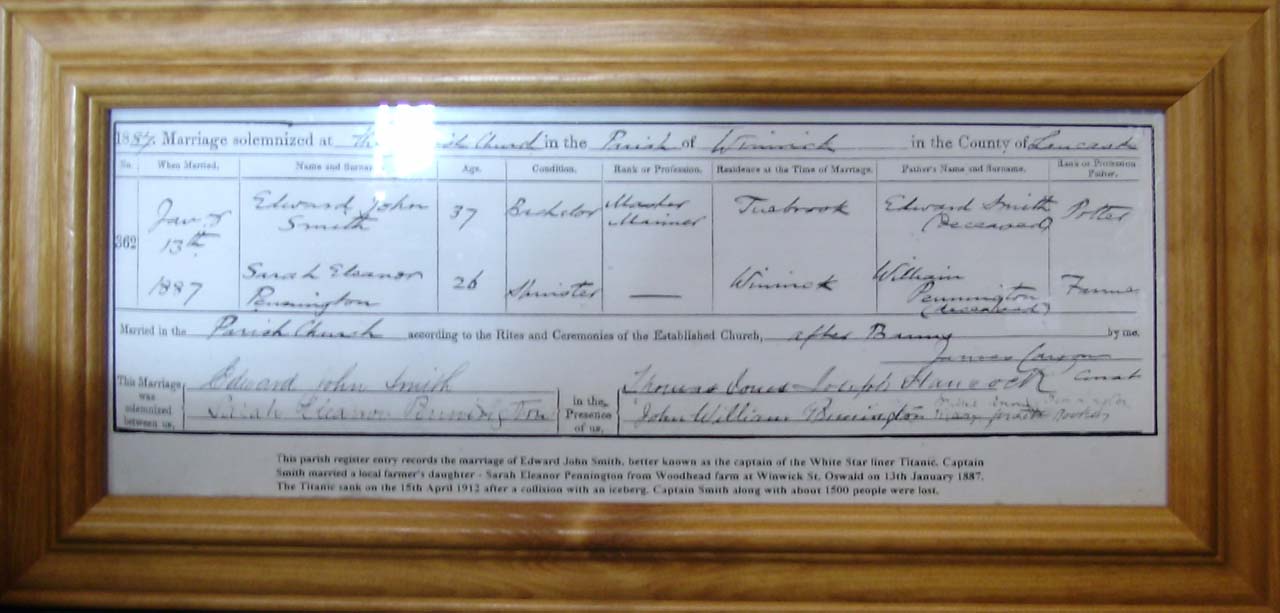 1887. Marriage solemnized at the Parish Church in the Parish of Winwick in the County of Lancaster
No. When Married. Name and Surname Age. Condition. Rank or Profession. Residence at the Time of Marriage. Father's Name and Surname. Rank or Profession Father.
362 Jany 13th 1887 Edward John Smith 37 Bachelor Master Mariner Tuebrook Edward Smith (deceased) Potter
Sarah Eleanor Pennington 26 Spinster — Winwick William Pennington (deceased) Farmer
Married in the Parish Church according to the Rites and Ceremonies of the Established Church, after Banns by me.
James
This Marriage was solemnized between us, Edward John Smith in the Presence of us, Thomas Jones Joseph Hancock
Sarah Eleanor Pennington John William Pennington
This parish register entry records the marriage of Edward John Smith, better known as the captain of the White Star liner Titanic. Captain
Smith married a local farmer's daughter - Sarah Eleanor Pennington from Woodhead farm at Winwick St. Oswald on 13th January 1887.
The Titanic sank on the 15th April 1912 after a collision with an iceberg. Captain Smith along with about 1500 people were lost.